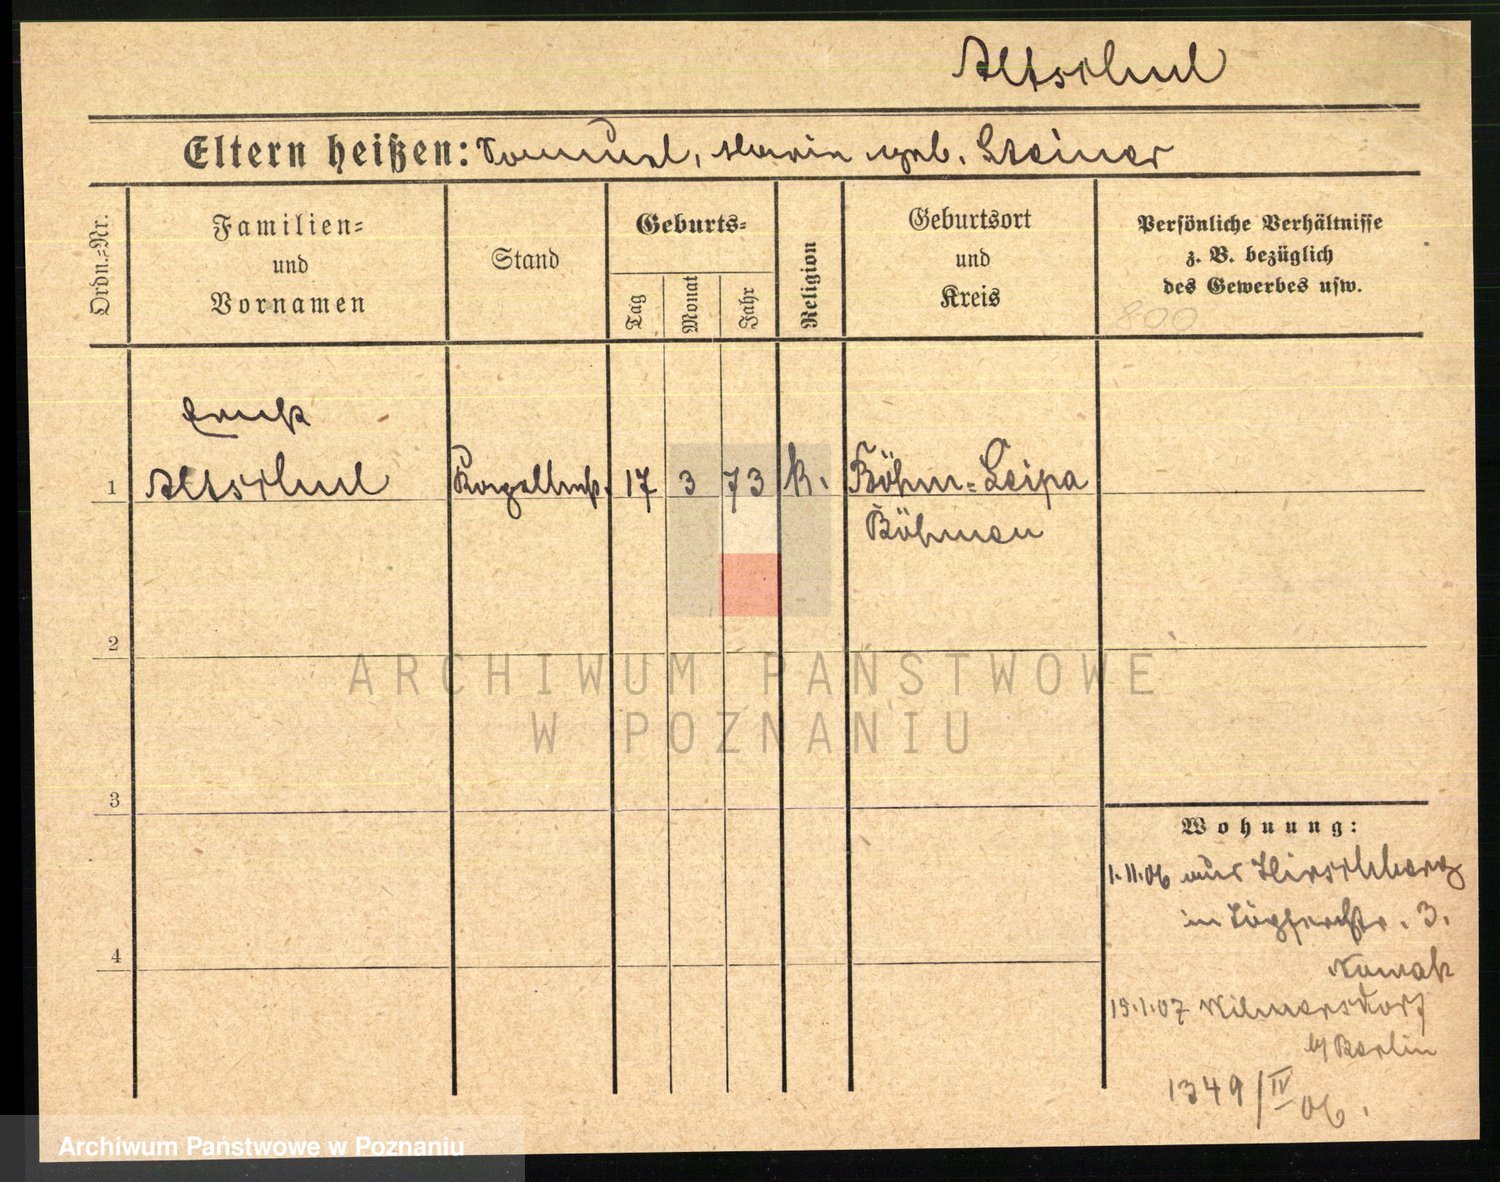 Altschul
Eltern heißen: Samuel, Marie geb. Steiner
Ordn.=Nr.
Familien=
und
Vornamen
Stand
Geburts=
Tag
Monat
Jahr
Religion
Geburtsort
und
Kreis
Persönliche Verhältnisse
z. B. bezüglich
des Gewerbes usw.
800
Ernst
1 Altschul Kapellmst. 17 3 73 k. Böhm=Leipa
Böhmen
2
ARCHIWUM PAŃSTWOWE
W POZNANIU
3
Wohnung:
1.11.06 aus Hirschberg
in 3.
Nowak
4
19.1.07 Wilmersdorf
b/ Berlin
1349/IV 06.
Archiwum Państwowe w Poznaniu